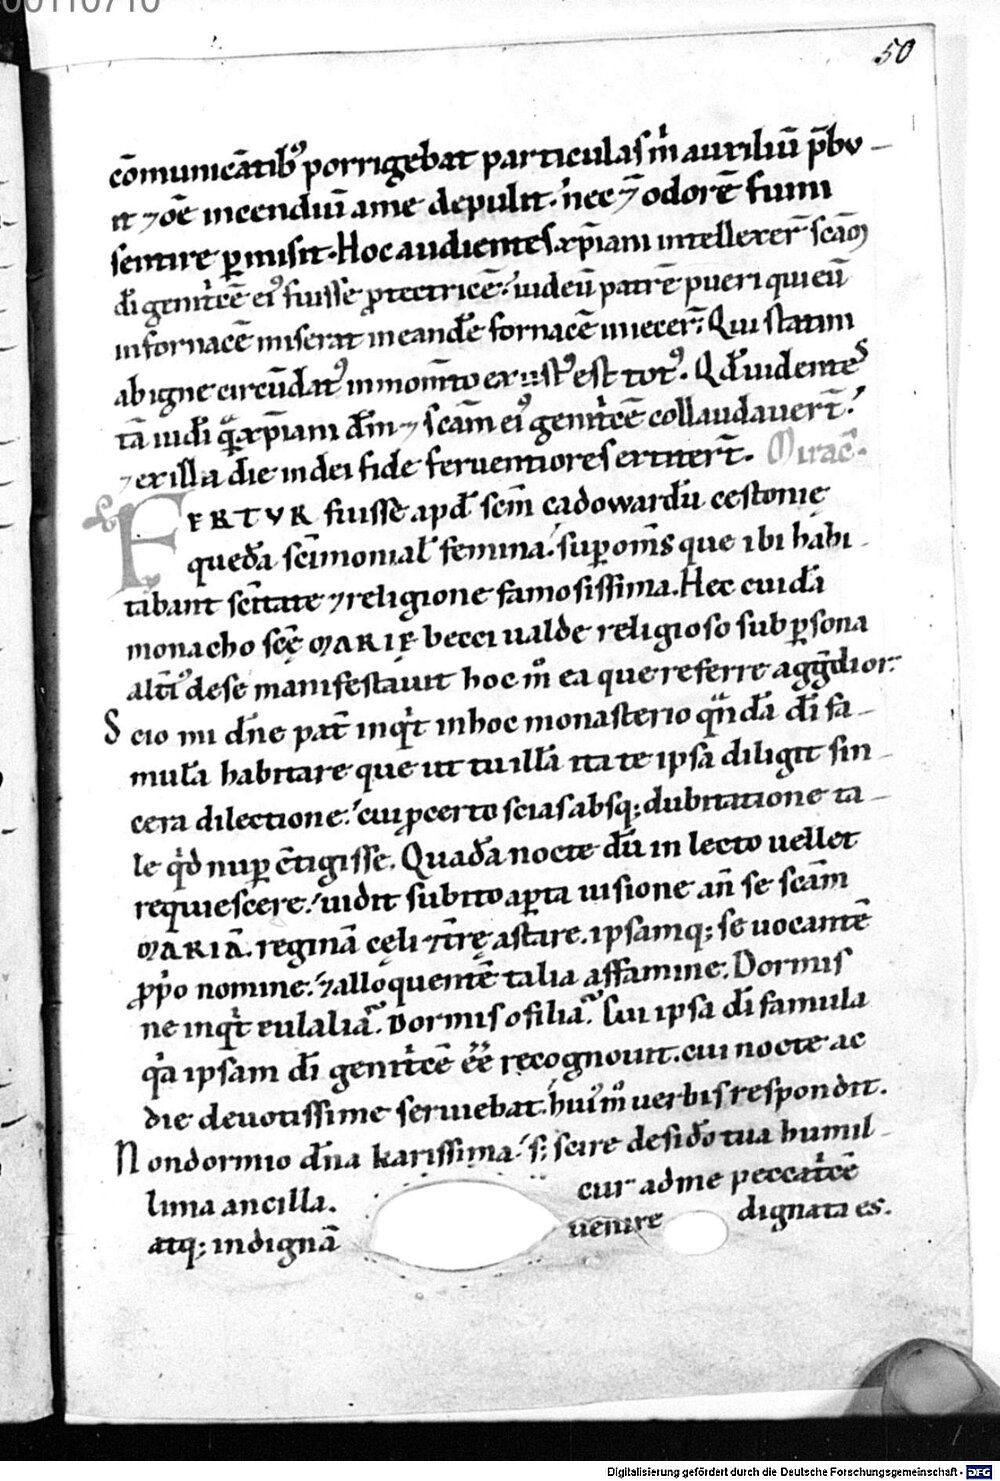 50
cōmunicātib⁹ porrigebat particulas m̄ auxiliū p̄bu-
it ⁊ oē incendiū a me depulit. nec ⁊ odorē fumi
sentire ꝑmisit. Hoc audientes xp̄iani intellexer̄ scām
dī genit̄cē ei⁹ fuisse ꝓtectricē. iudeū patrē pueri qui eū
in fornacē miserat in eandē fornacē iniecer̄. Qui statim
ab igne circūdat⁹ in mom̄to exust⁹ est tot⁹. Qd̄ uidentes
tā iudī quā xp̄iani dn̄m ⁊ scām ei⁹ genit̄cē collaudauer̄t.
⁊ ex illa die in dei fide feruentiores extiter̄t. Mirac̄.
FERTVR fuisse apd̄ scm̄ eadowardū cestonię
quedā sc̄imonial̄ femina. suꝑ om̄s que ibi habi-
tabant sc̄itate ⁊ religione famosissima. Hec cuidā
monacho scę MARIĘ becci ualde religioso sub ꝑsona
alt̄i⁹ de se manifestauit hoc m̊ ea que referre aggdior.
Scio mi dn̄e pat̄ inqt in hoc monasterio qndā dī fa-
mulā habitare que ut tu illā ita te ipsa diligit sin-
cera dilectione. cui ꝓcerto scias absq; dubitatione ta-
le qd nuꝑ c̄tigisse. Quadā nocte dū in lecto uellet
requiescere. uidit subito aꝑta uisione an̄ se scām
MARIĀ. reginā cęli ⁊ t̄rę astare. ipsamq; se uocantē
ꝓp̄o nomine. ⁊ alloquentē talia affamine. Dormis
ne inqt eulalia. Dormis o filia. Cui ipsa dī famula
qa ipsam dī genit̄cē eē recognouit. cui nocte ac
die deuotissime seruiebat. hui⁹m̊ uerbis respondit.
Non dormio dn̄a karissima. s; scire desidō tua humil-
lima ancilla. cur ad me peccat̄cē
atq; indignā uenire dignata es.
Digitalisierung gefördert durch die Deutsche Forschungsgemeinschaft - DFG